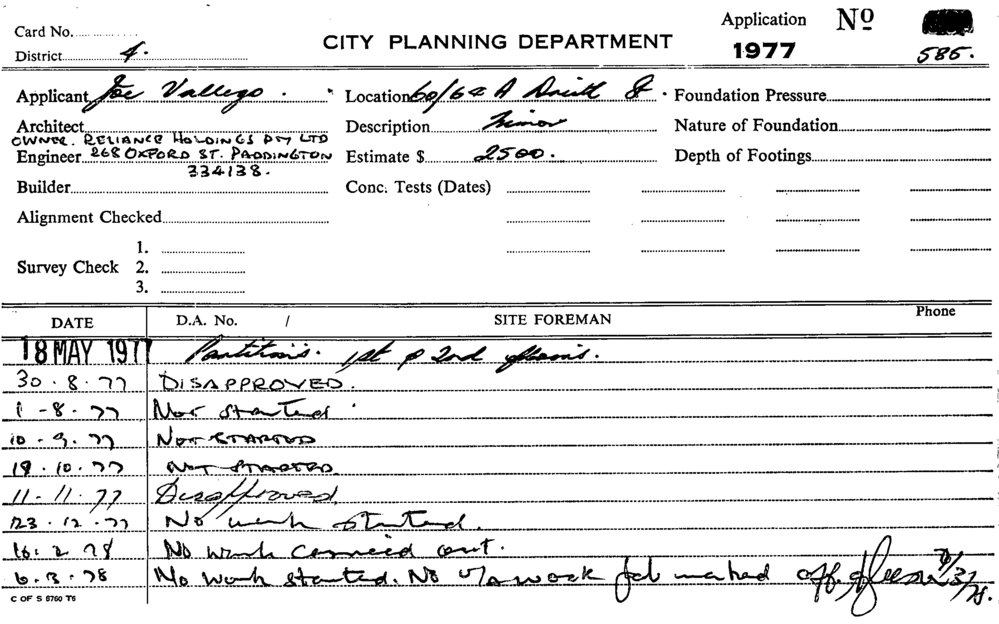 Card No.
Application Nº
District 4.
CITY PLANNING DEPARTMENT
1977
585.
Applicant Joe Vallego.
Location 60/62 A St.
Foundation Pressure
Architect
Description Minor
Nature of Foundation
OWNER. RELIANCE HOLDINGS PTY LTD
Engineer 268 OXFORD ST. PADDINGTON
Estimate $ 2500.
Depth of Footings
334138.
Builder
Conc. Tests (Dates)
Alignment Checked
1.
Survey Check 2.
3.
DATE D.A. No. / SITE FOREMAN Phone
18 MAY 1977 Partitions. 1st & 2nd floors.
30.8.77 DISAPPROVED.
1-8.77 Not started.
10-9.77 NOT STARTED
19.10.77 NOT STARTED.
11-11.77 Disapproved
23.12.77 No work started.
16.2.78 No work carried out.
6.3.78 No work started. No u/a work job marked off. 7/3/78.
C OF S 6760 T6